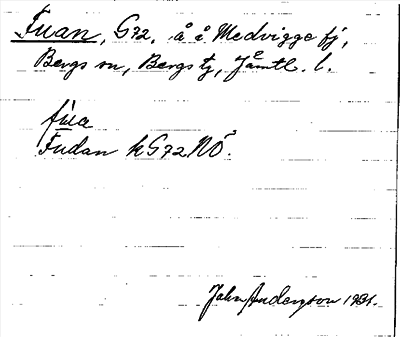 Fuan, G72, å å Medvigge fj,
Bergs sn, Bergs tg, Jämtl. l.
fúa
Fudan k G72 NÖ.
John Anderson 1931.